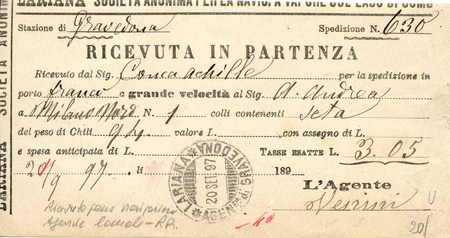 LARIANA SOCIETÀ ANONIMA PER LA NAVIG. A VAPORE SUL LAGO DI COMO
Stazione di Gravedona Spedizione N. 630
RICEVUTA IN PARTENZA
Ricevuto dal Sig. Conca Achille per la spedizione in
porto franco a grande velocità al Sig. A. Andrea
a Milano Nord N. 1 colli contenenti seta
del peso di Chili 94 valore L. con assegno di L.
e spesa anticipata di L. TASSE ESATTE L. 3.05
20/9 97. li 189
L'Agente
LARIANA
20 SET. 97
AGEN. di GRAVEDONA
20/
LARIANA SOCIETÀ ANONIM